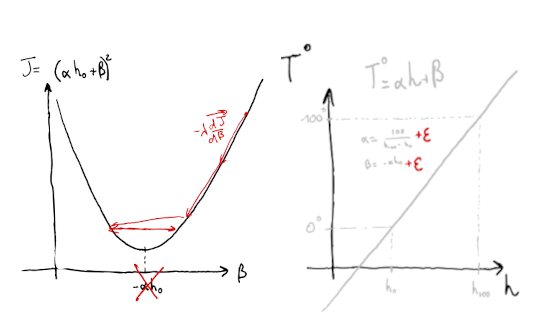 J= (αh₀+β)²
-λ dJ/dβ
β
-αh₀
T°
T°=αh+β
100°
α= 100/(h₁₀₀-h₀) +ε
β= -αh₀+ε
0°
h₀
h₁₀₀
h